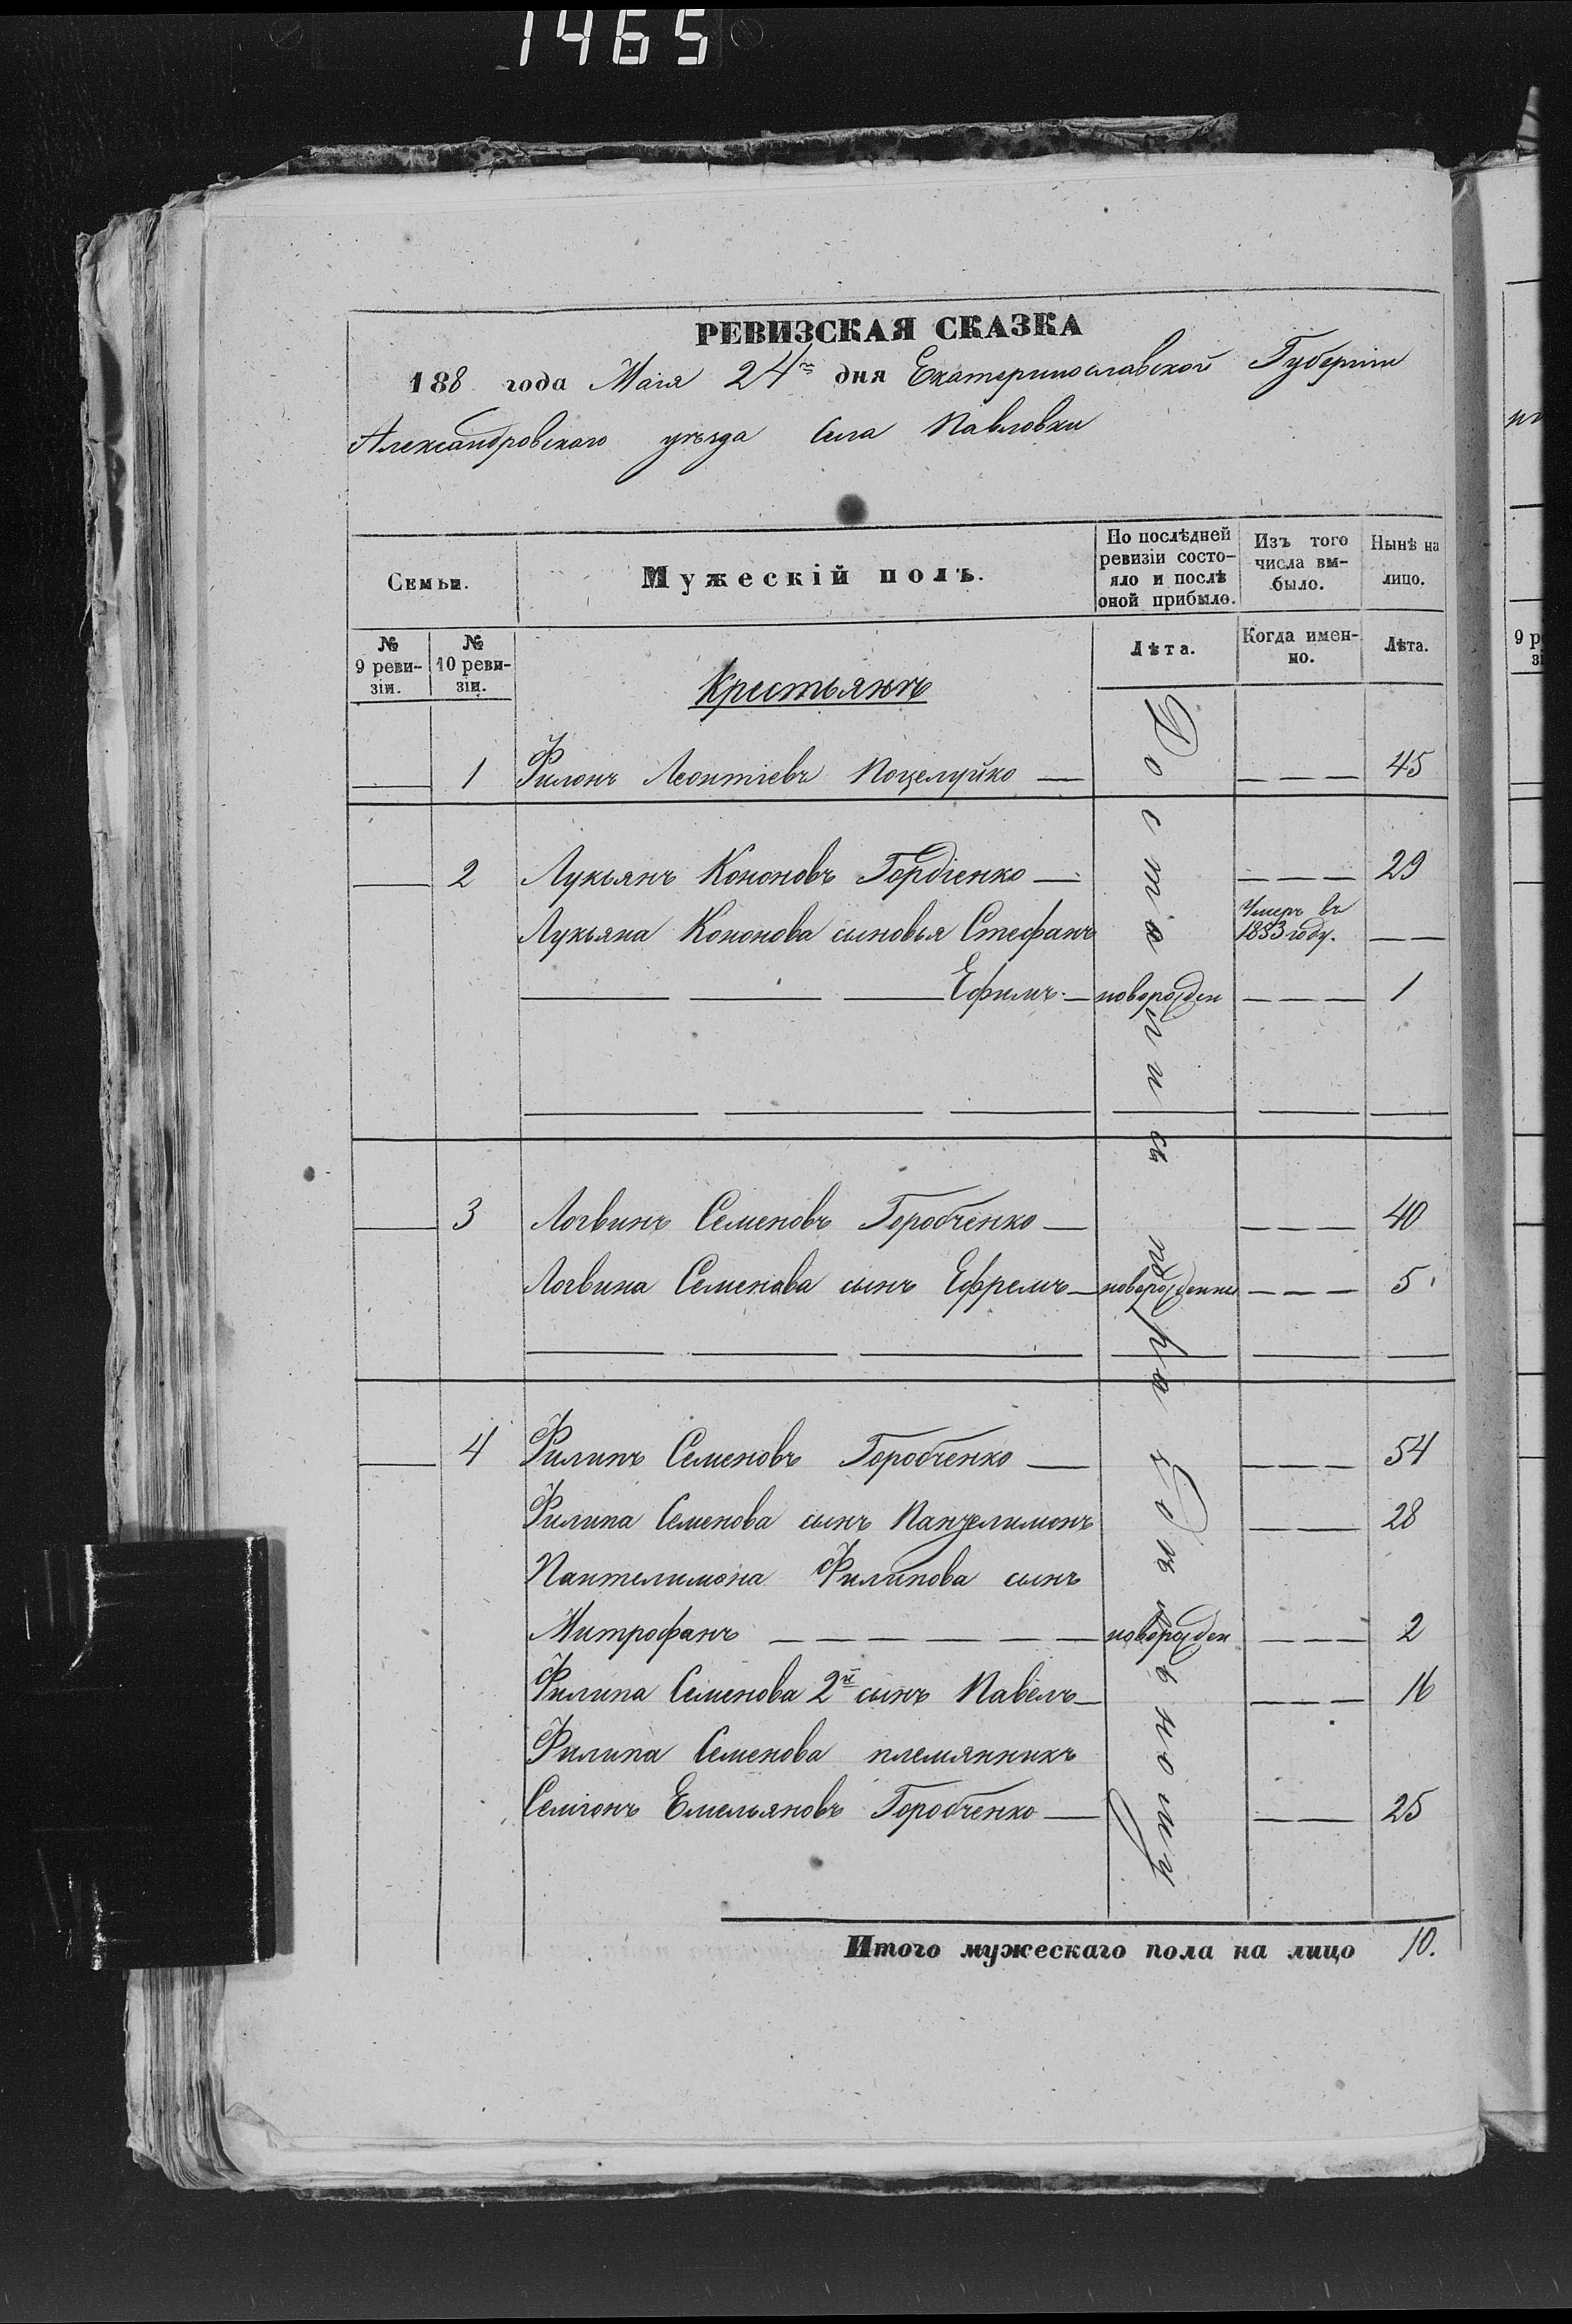 1465
РЕВИЗСКАЯ СКАЗКА
188 года Маія 24го дня Екатеринославской Губерніи
Александровского уѣзда Села Павловки
Семьи.
Мужескій полъ.
По послѣдней ревизіи состояло и послѣ оной прибыло.
Изъ того числа выбыло.
Нынѣ на лицо.
№ 9 ревизіи.
№ 10 ревизіи.
Лѣта.
Когда именно.
Лѣта.
Крестьянъ
1 Филонъ Леонтіевъ Поцелуйко — — — — 45
2 Лукьянъ Кононовъ Гордіенко — — — — 29
Лукьяна Кононова сыновья Стефанъ Умеръ въ 1883 году. — —
— — — Ефимъ — новорожден — — — 1
3 Логвинъ Семеновъ Горобченко — — — — 40
Логвина Семенова сынъ Ефремъ — новорожденны — — — 5
4 Филипъ Семеновъ Горобченко — — — — 54
Филипа Семенова сынъ Пантелимонъ — — 28
Пантелимона Филипова сынъ
Митрофанъ — — — — — — новорожден — — — 2
Филипа Семенова 2й сынъ Павелъ — — — — 16
Филипа Семенова племянникъ
Семіонъ Емельяновъ Горобченко — — — 25
Итого мужескаго пола на лицо 10.
9 р